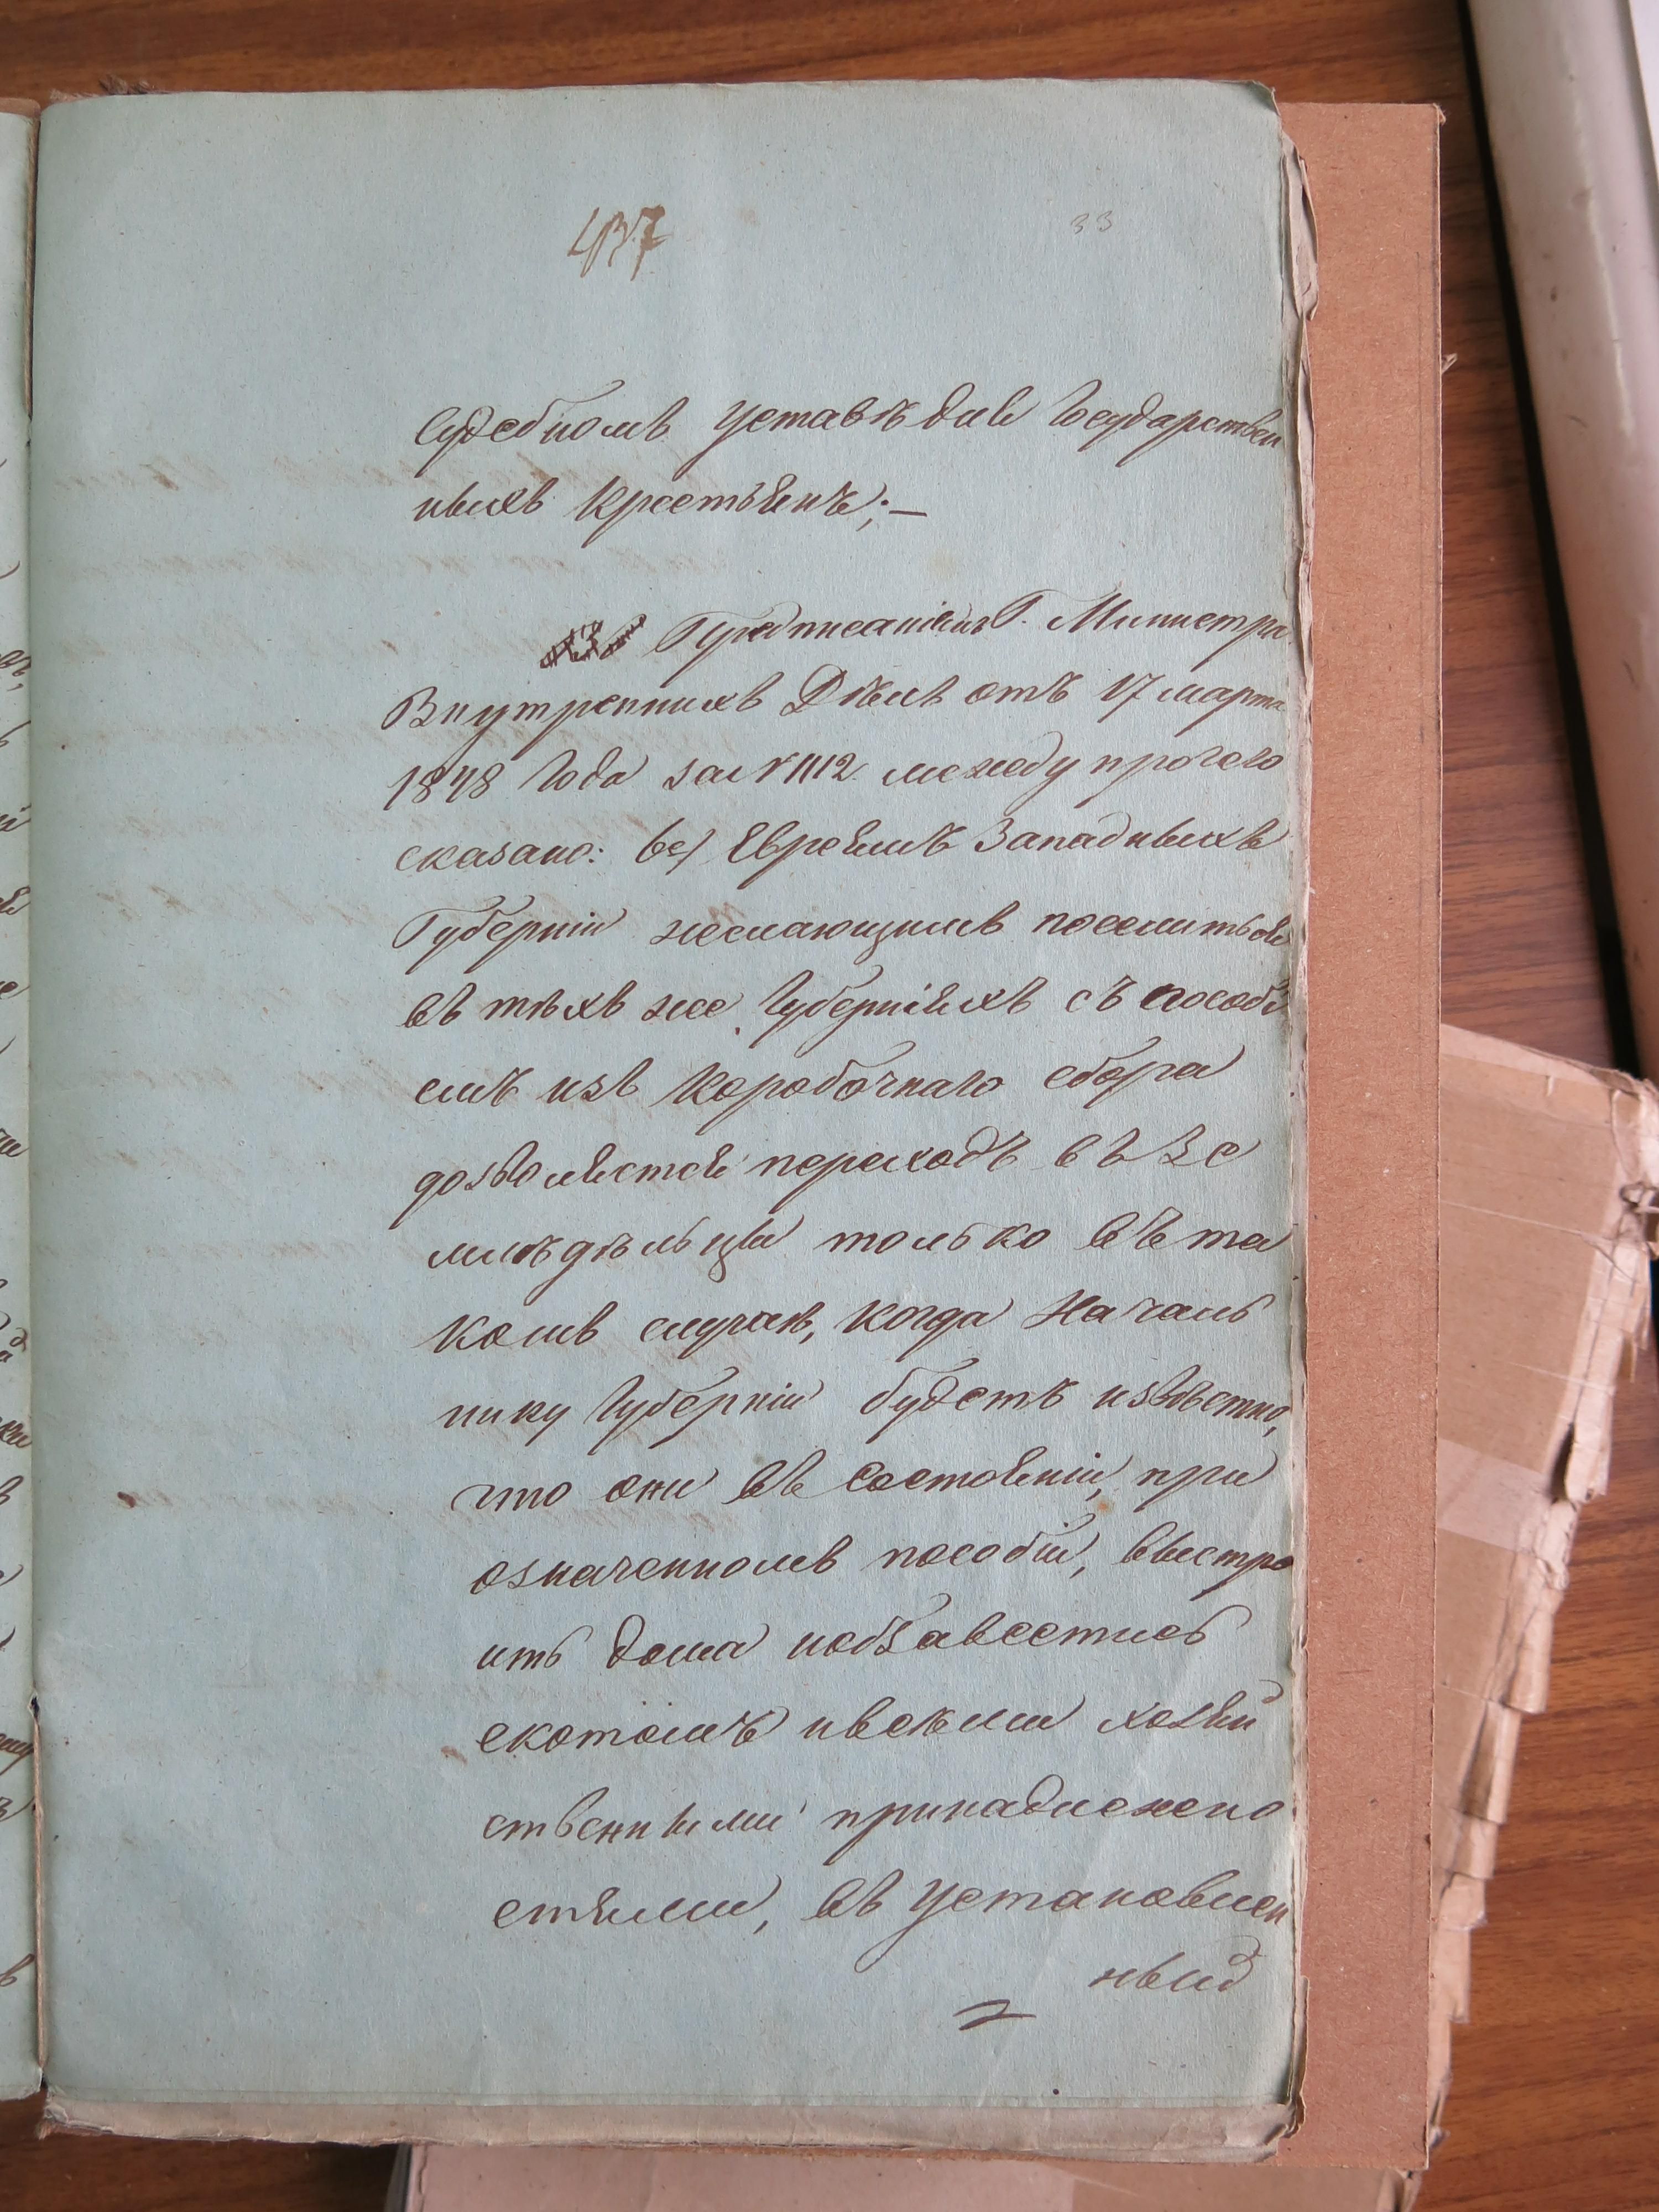 437
33
Судебномъ Уставѣ для Государствен
ныхъ Крестьянъ;—
Предписаніемъ Г. Министра
Внутреннихъ Дѣлъ отъ 17 марта
1848 Года за № 1112 между прочего
сказано: 6е) Евреямъ Западныхъ
Губерній желающимъ поселиться
въ тѣхъ же Губерніяхъ съ пособі
емъ изъ Коробочнаго сбора
дозволяется переходъ въ Зе
млѣдѣльцы только въ та
комъ случаѣ, когда Началь
нику Губерніи будетъ извѣстно,
что они въ состояніи, при
означенномъ пособіи, выстро
ить дома иобзавестись
скотомъ ивсѣми хозяй
ственными принадлежно
стями, въ Установлен
ный